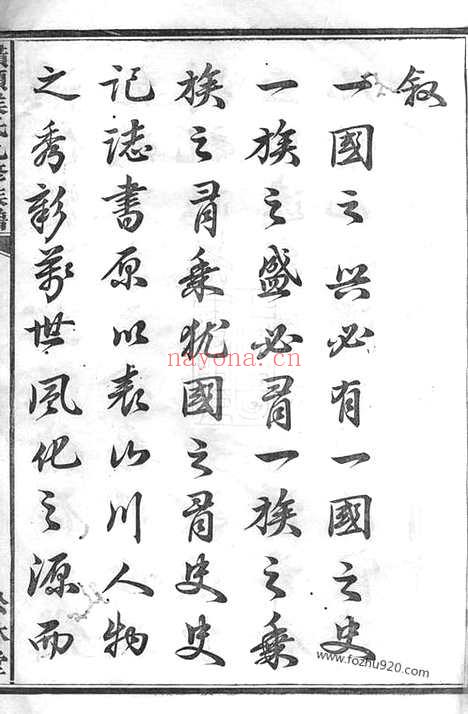 叙
一國之興必有一國之史
一族之盛必有一族之乘
族之有乘猶國之有史史
記誌書原以表山川人物
之秀彰萬世風化之源而
nayona.cn
www.fozhu920.com